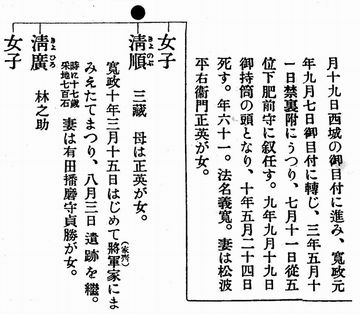 月十九日西城の御目付に進み、寬政元
年九月七日御目付に轉じ、三年五月十
一日禁裏附にうつり、七月十一日從五
位下肥前守に叙任す。九年九月十九日
御持筒の頭となり、十年五月二十四日
死す。年六十一。法名義寬。妻は松波
平右衞門正英が女。
女子
淸順
きよのぶ
三藏 母は正英が女。
寬政十年三月十五日はじめて將軍家にま
(家齊)
みえたてまつり、八月三日遺跡を繼。
時に十七歲
采地七百石
妻は有田播磨守貞勝が女。
淸廣
きよひろ
林之助
女子